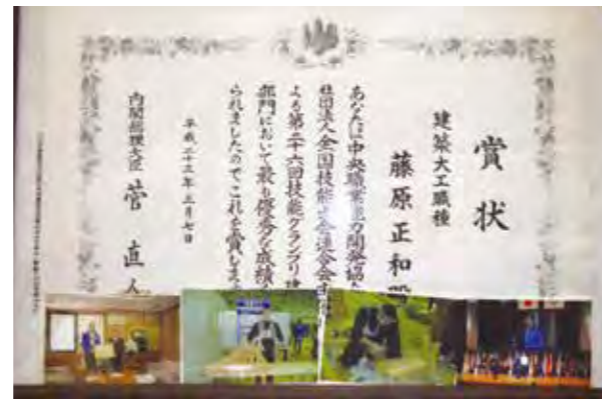 賞状
建築大工職種
藤原正和
あなたは中央職業能力開発協
社団法人全国技能士会連合会
よる第二十六回技能グランプリ建
部門において最も優秀な成績
られましたのでこれを賞しま
平成二十三年三月七日
内閣総理大臣 菅直人